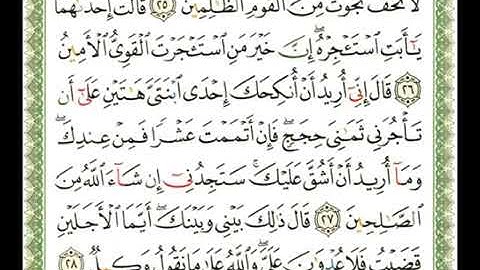 لَا تَخَفْ نَجَوْتَ مِنَ ٱلْقَوْمِ ٱلظَّٰلِمِينَ ٢٥ قَالَتْ إِحْدَىٰهُمَا
يَٰٓأَبَتِ ٱسْتَـْٔجِرْهُ إِنَّ خَيْرَ مَنِ ٱسْتَـْٔجَرْتَ ٱلْقَوِىُّ ٱلْأَمِينُ
٢٦ قَالَ إِنِّىٓ أُرِيدُ أَنْ أُنكِحَكَ إِحْدَى ٱبْنَتَىَّ هَٰتَيْنِ عَلَىٰٓ أَن
تَأْجُرَنِى ثَمَٰنِىَ حِجَجٍ فَإِنْ أَتْمَمْتَ عَشْرًا فَمِنْ عِندِكَ
وَمَآ أُرِيدُ أَنْ أَشُقَّ عَلَيْكَ سَتَجِدُنِىٓ إِن شَآءَ ٱللَّهُ مِنَ
ٱلصَّٰلِحِينَ ٢٧ قَالَ ذَٰلِكَ بَيْنِى وَبَيْنَكَ أَيَّمَا ٱلْأَجَلَيْنِ
قَضَيْتُ فَلَا عُدْوَٰنَ عَلَىَّ وَٱللَّهُ عَلَىٰ مَا نَقُولُ وَكِيلٌ ٢٨